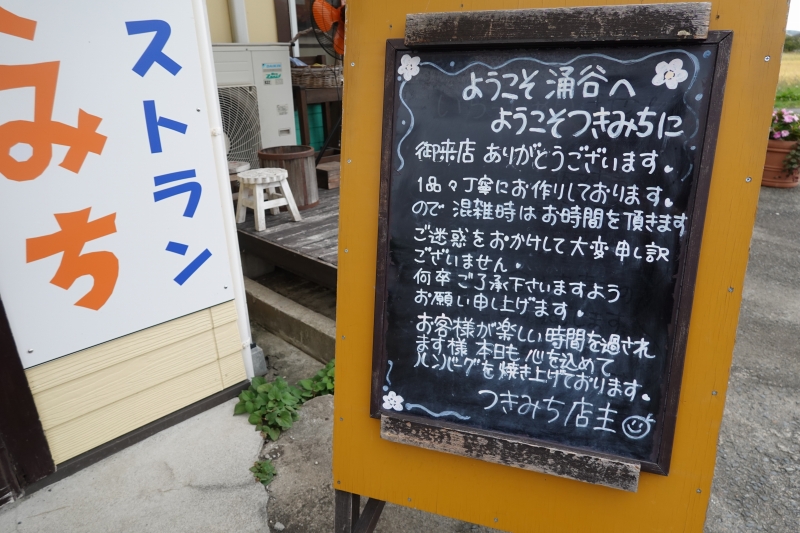 みち
ストラン
ようこそ 涌谷へ
ようこそつきみちに
御来店 ありがとうございます。
1品々丁寧にお作りしております。
ので 混雑時は お時間を頂きます
ご迷惑をおかけして 大変申し訳
ございません。
何卒ご了承下さいますよう
お願い申し上げます。
お客様が楽しい時間を過され
ます様 本日も 心を込めて
ハンバーグを焼き上げております。
つきみち店主